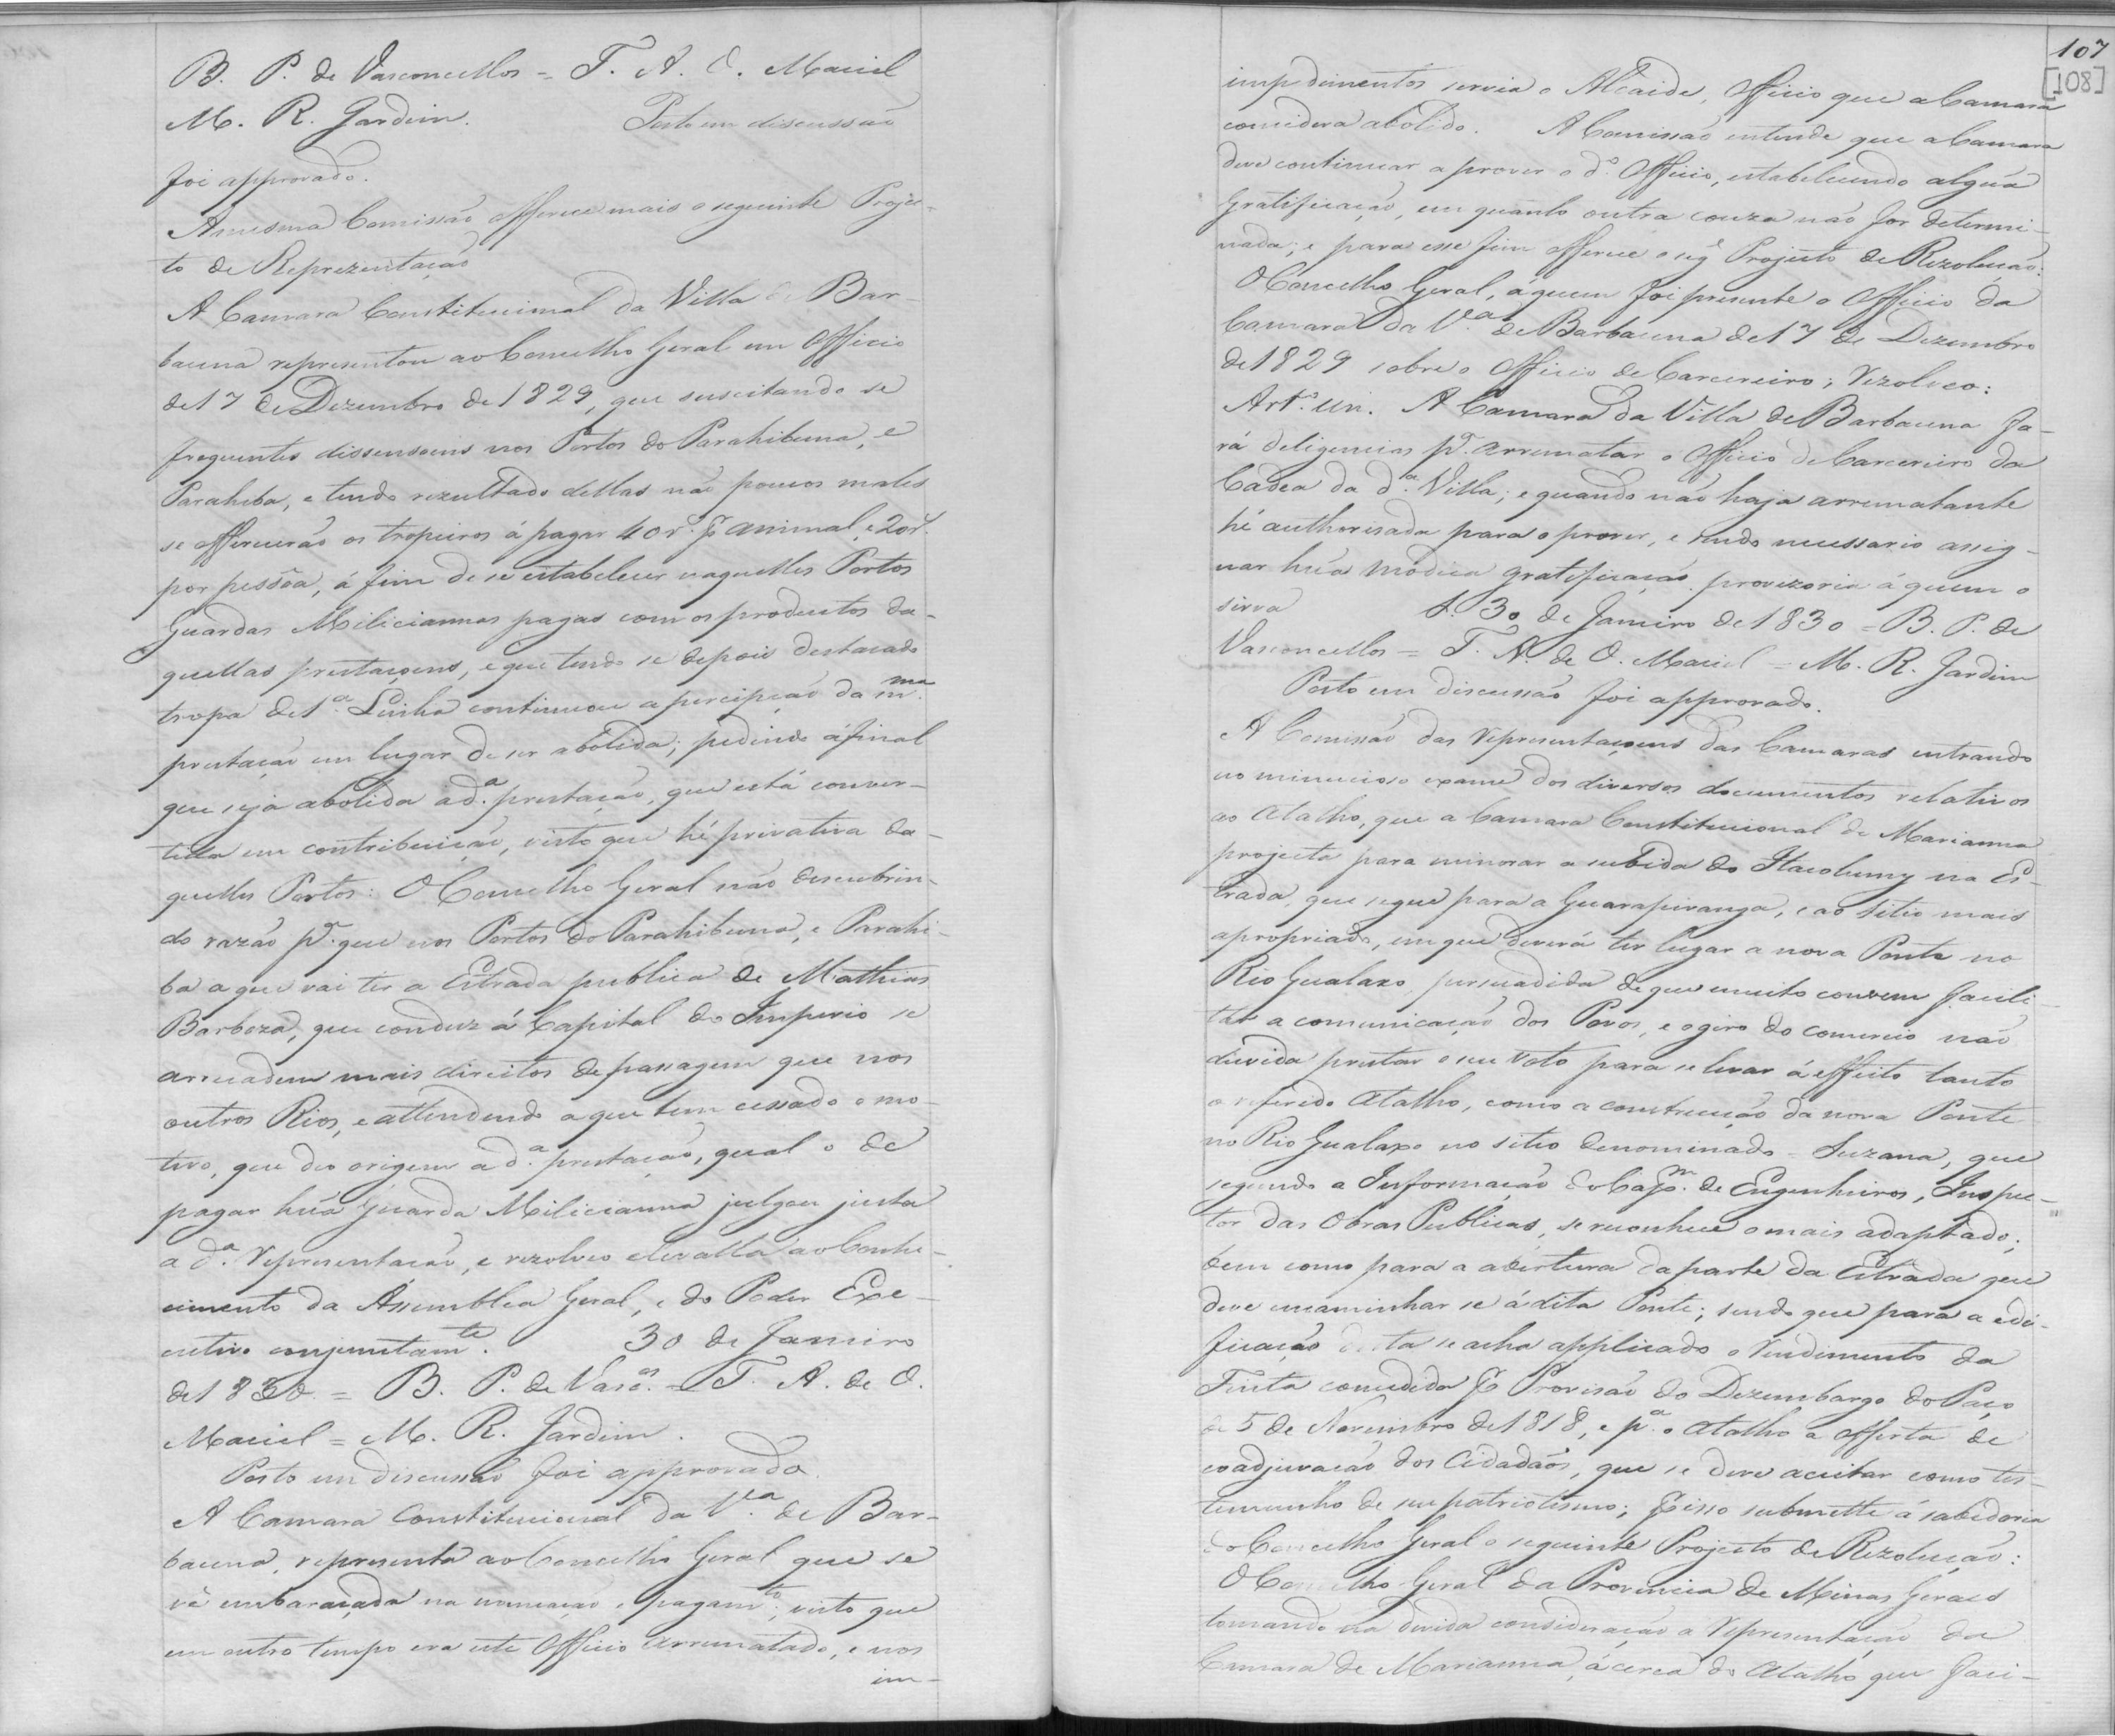 B. P. de Vasconcellos = T. A. O. Maciel
M. R. Jardim. Posto em discussão
foi approvado.
A mesma Comissão offerece mais o seguinte Projec-
to de Reprezentação
A Camara Constitucional da Villa de Bar-
bacena representou ao Concelho Geral em Officio
de 17 de Dezembro de 1829, que suscitando se
frequentes dissensoens nos Portos do Parahibuna, e
Parahiba, e tendo rezultado dellas não poucos males
se offerecerão os tropeiros á pagar 40 rs. pr. animal, e 20 rs.
por pessôa, á fim de se estabelecer naquelles Portos
Guardas Miliciannas pagas com os productos da-
quellas prestaçoens, e que tendo se depois destacado
tropa de 1.a Linha continuou a percipção da m.ma
prestação em lugar de ser abolida; pedindo áfinal
que seja abolida a d.a prestação, que está conver-
tida em contribuição, visto que hé privativa da-
quelles Portos: O Concelho Geral não descubrin-
do razão pr. que nos Portos do Parahibuna, e Parahi-
ba a que vai ter a Estrada publica de Mathias
Barboza, que conduz á Capital do Imperio se
arrecadem mais direitos de passagem que nos
outros Rios, e attendendo a que tem cessado o mo-
tivo, que deo origem a d.a prestação, qual o de
pagar hũa Guarda Milicianna julgou justa
a d.a Representação, e rezolveo elevalla ao Conhe-
cimento da Assemblea Geral, e do Poder Exe-
cutivo conjunctam.te 30 de Janeiro
de 1830. = B. P. de Vasc.os = T. A. de O.
Maciel = M. R. Jardim.
Posto em discussão foi approvado
A Camara Constitucional da V.a de Bar-
bacena, representa ao Concelho Geral que se
vê embaraçada na nomeação e pagam.to, visto que
em outro tempo era este Officio arrematado, e nos
im-
107
[108]
impedimentos servia o Alcaide, Officio que a Camara
considera abolido. A Comissão entende que a Camara
deve continuar a prover o d.o Officio, estabelecendo algũa
Gratificação, em quanto outra couza não for determi-
nada; e para esse fim offerece o seg.e Projecto de Rezolução:
O Concelho Geral, á quem foi presente o Officio da
Camara da V.a de Barbacena de 17 de Dezembro
de 1829 sobre o Officio de Carcereiro; Rezolveo:
Art.o un. A Camara da Villa de Barbacena fa-
rá deligencias pr. arrematar o Officio de Carcereiro da
Cadea da d.a Villa; e quando não haja arrematante
hé authorisada para o prover, e sendo necessario assig-
nar hũa módica gratificação provizoria á quem o
sirva S. 30 de Janeiro de 1830 = B. P. de
Vasconcellos = T. A. de O. Maciel = M. R. Jardim
Posto em discussão foi approvado.
A Comissão das Representaçoens das Camaras entrando
no minucioso exame dos diversos documentos relativos
ao Atalho, que a Camara Constitucional de Marianna
projecta para minorar a subida do Itacolumy na Es-
trada, que segue para a Guarapiranga, e ao sitio mais
apropriado, em que deverá ter lugar a nova Ponte no
Rio Gualaxo, persuadida de que muito convem facili-
tar a comunicação dos Povos, e o giro do comercio não
duvida prestar o seu voto para se levar á effeito tanto
o referido Atalho, como a construcção da nova Ponte
no Rio Gualaxo no sitio denominado - Suzana, que
segundo a Informação do Cap.m de Engenheiros, Inspec-
tor das Obras Publicas, se reconhece o mais adaptado;
bem como para a abertura da parte da Estrada que
deve encaminhar se á dita Ponte; sendo que para a edi-
ficação desta se acha applicado o Rendimento da
Finta concedida pr. Provisão do Dezembargo do Paço
de 5 de Novembro de 1818, e p.a o Atalho a offerta de
coadjuvação dos Cidadãos, que se deve aceitar como tes-
temunho de seu patriotismo; pr. isso submette á sabedoria
do Concelho Geral o seguinte Projecto de Rezolução:
O Concelho Geral da Provincia de Minas Geraes
tomando na devida consideração a Representação da
Camara de Marianna, ácerca do Atalho que faci-